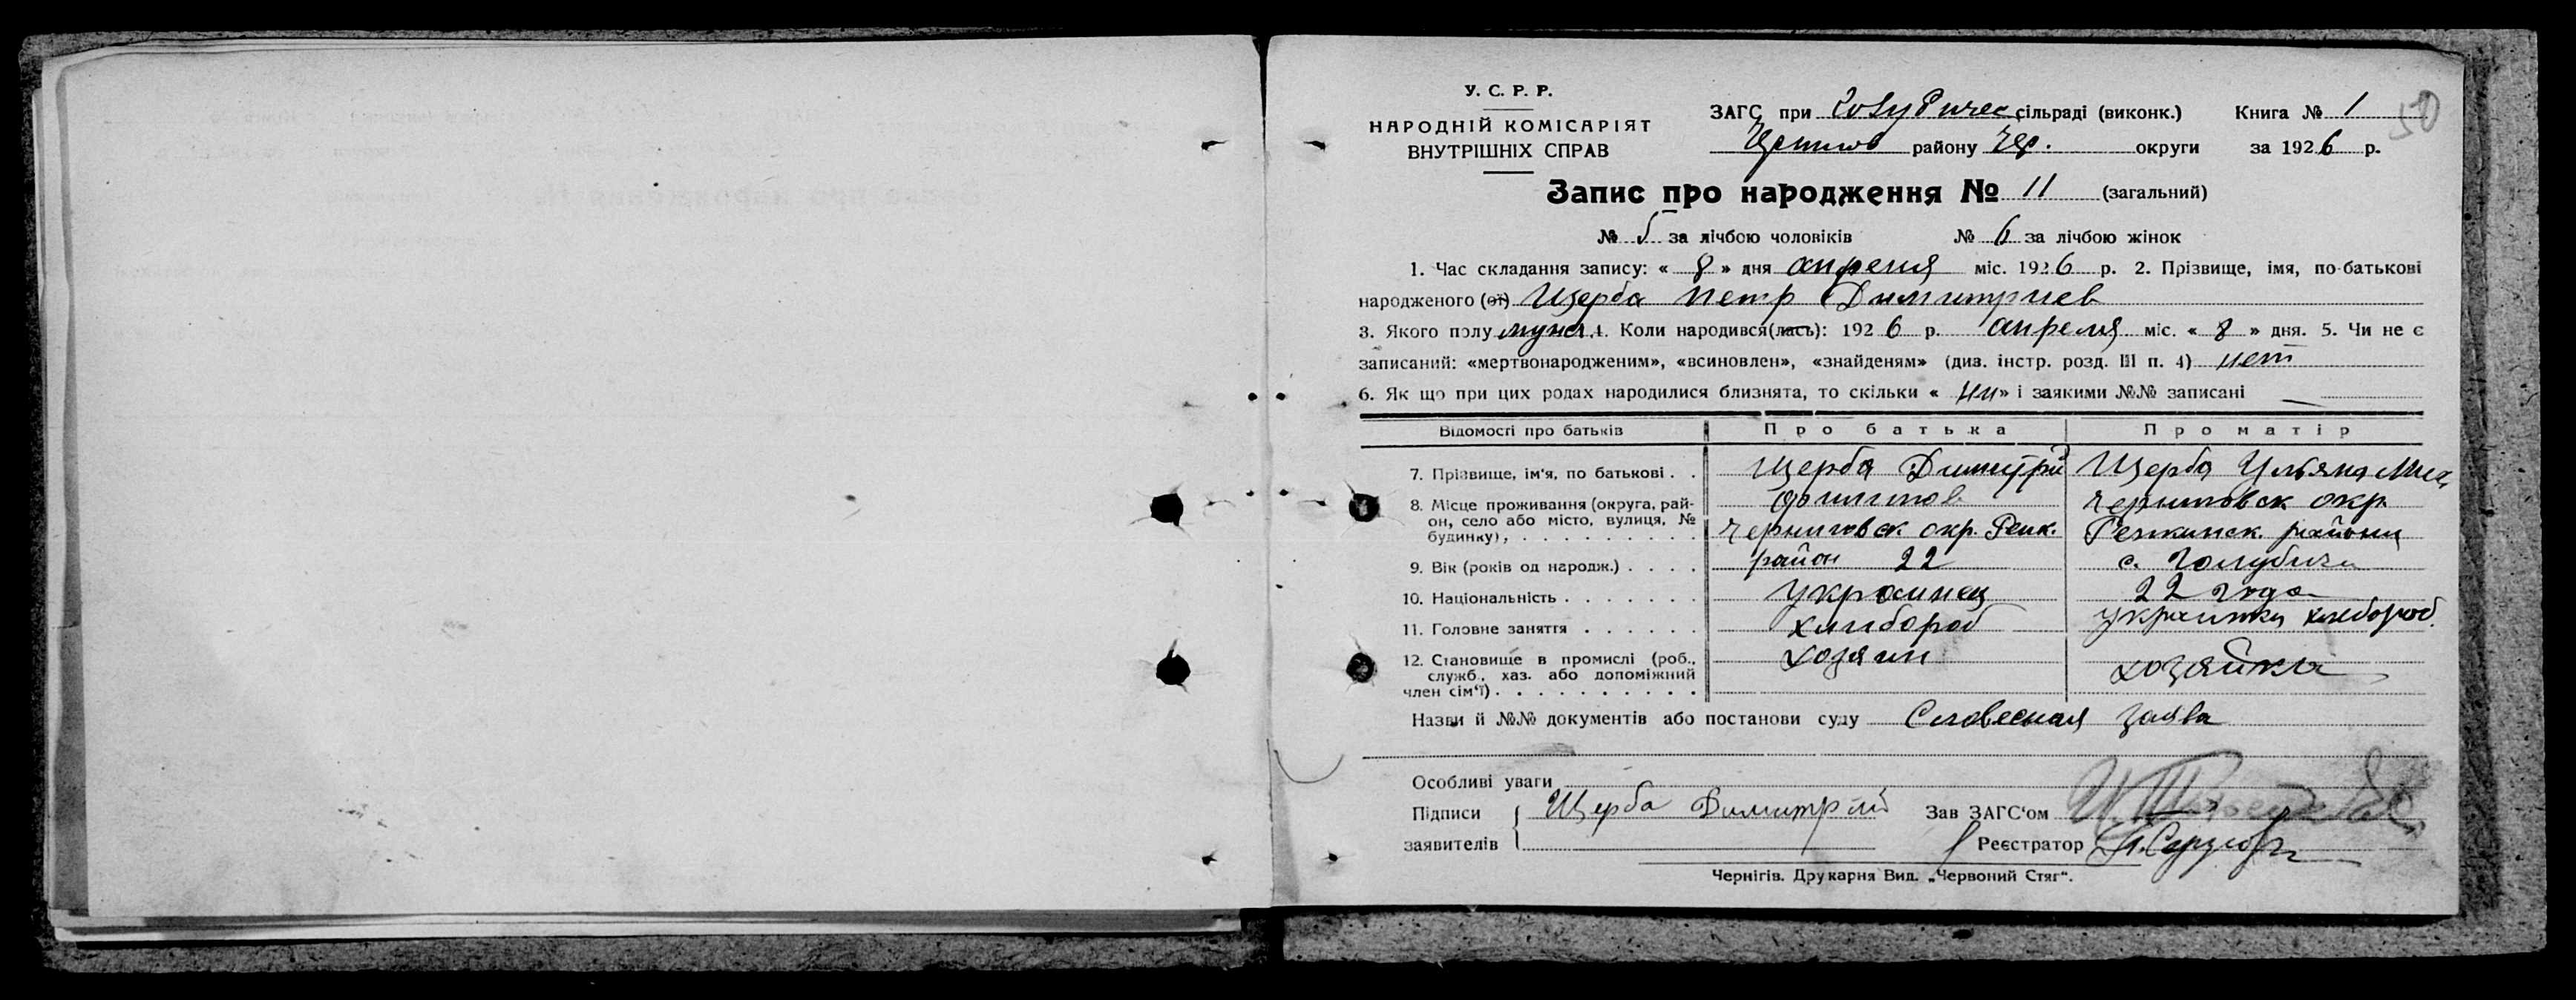 У. С. Р. Р.
НАРОДНІЙ КОМІСАРІЯТ
ВНУТРІШНІХ СПРАВ
ЗАГС при Голубичес сільраді (виконк.) Книга № 1
району Чер. округи за 1926 р.
50
Запис про народження № 11 (загальний)
№ 5 за лічбою чоловіків № 6 за лічбою жінок
1. Час складання запису: « 8 » дня апреля міс. 1926 р. 2. Прізвище, імя, по-батькові
народженого (ої) Щерба Петр Димитриев
3. Якого полу мужс. 4. Коли народився(лась): 1926 р. апреля міс. « 8 » дня. 5. Чи не є
записаний: «мертвонародженим», «всиновлен», «знайденям» (див. інстр. розд. III п. 4) нет
6. Як що при цих родах народилися близнята, то скільки « » і заякими №№ записані —
Відомості про батьків Про батька Про матір
7. Прізвище, ім'я, по батькові . . Щерба Димитрий Щерба Ульяна
8. Місце проживання (округа, рай- Филипов Черниговск окр.
он, село або місто, вулиця, № Черниговск. окр. Репк. Репкинск. района
будинку), . . . . . . . . . .
9. Вік (років од народж.) . . . . район 22 с. Голубичи
10. Національність . . . . . . . украинец 22 года
11. Головне заняття . . . . . . хлибороб украинка хлебороб.
12. Становище в промислі (роб., хозяин хозяйка
служб., хаз. або допоміжний
член сім'ї) . . . . . . . . . .
Назви й №№ документів або постанови суду Словесная заява
Особливі уваги
Підписи Щерба Димитрий Зав ЗАГС'ом
заявителів Реєстратор
Чернігів. Друкарня Вид. „Червоний Стяг“.